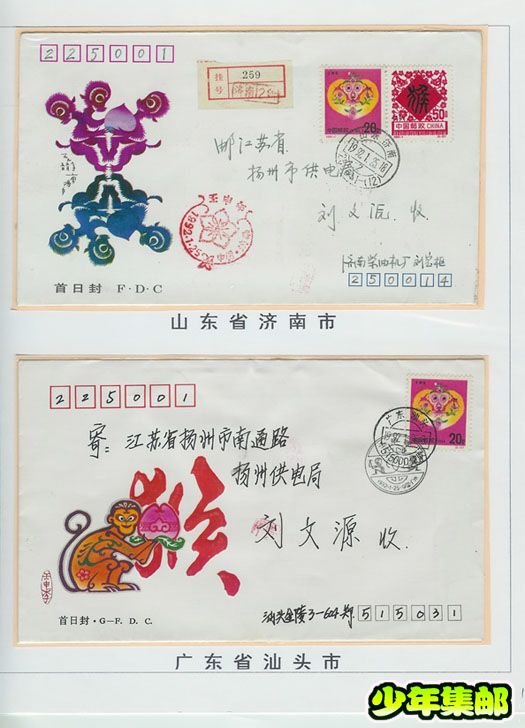 225001
挂号 259
济南
20
50
中国邮政 CHINA
猴
邮江苏省
扬州市供电
刘文沅 收
壬申年
1992.1.25
济南柴油机厂
250014
首日封 F·D·C
山东省济南市
225001
20
广东 汕头
寄：江苏省扬州市南通路
扬州供电局
刘文源 收
猴
壬申年
汕头金陵3-604郑
515031
首日封·G-F. D. C.
广东省汕头市
少年集邮